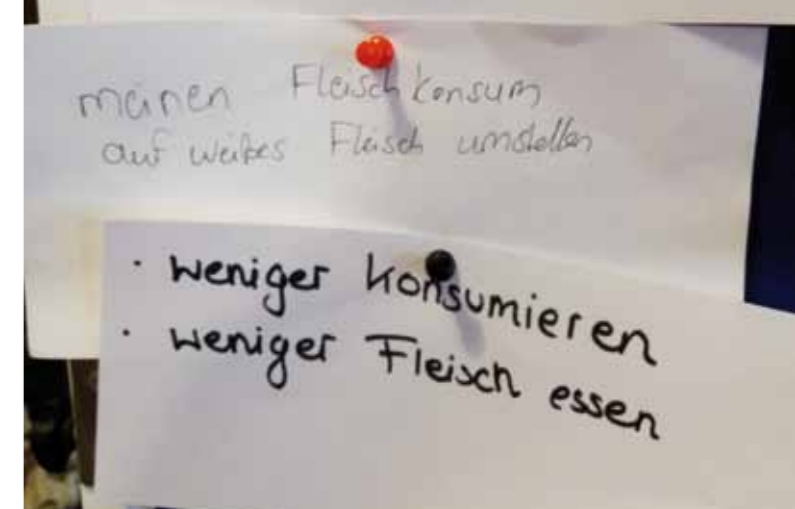 meinen Fleischkonsum
auf weißes Fleisch umstellen
· weniger konsumieren
· weniger Fleisch essen